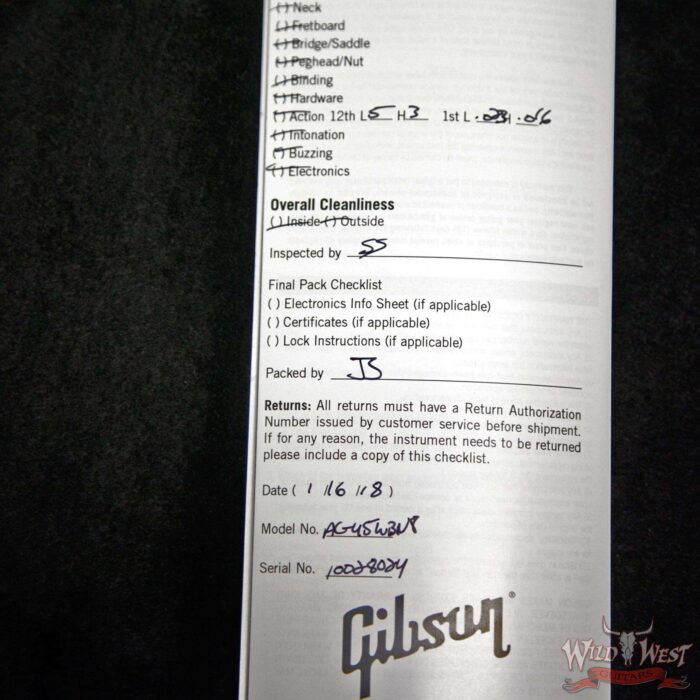 ( ) Neck
( ) Fretboard
( ) Bridge/Saddle
( ) Peghead/Nut
( ) Binding
( ) Hardware
( ) Action 12th L 5 H 3 1st L .03 H .06
( ) Intonation
( ) Buzzing
( ) Electronics
Overall Cleanliness
( ) Inside ( ) Outside
Inspected by SS
Final Pack Checklist
( ) Electronics Info Sheet (if applicable)
( ) Certificates (if applicable)
( ) Lock Instructions (if applicable)
Packed by JS
Returns: All returns must have a Return Authorization
Number issued by customer service before shipment.
If for any reason, the instrument needs to be returned
please include a copy of this checklist.
Date ( 1 /16 /18 )
Model No. AG45WBN8
Serial No. 10028024
Gibson®
WILD WEST
GUITARS